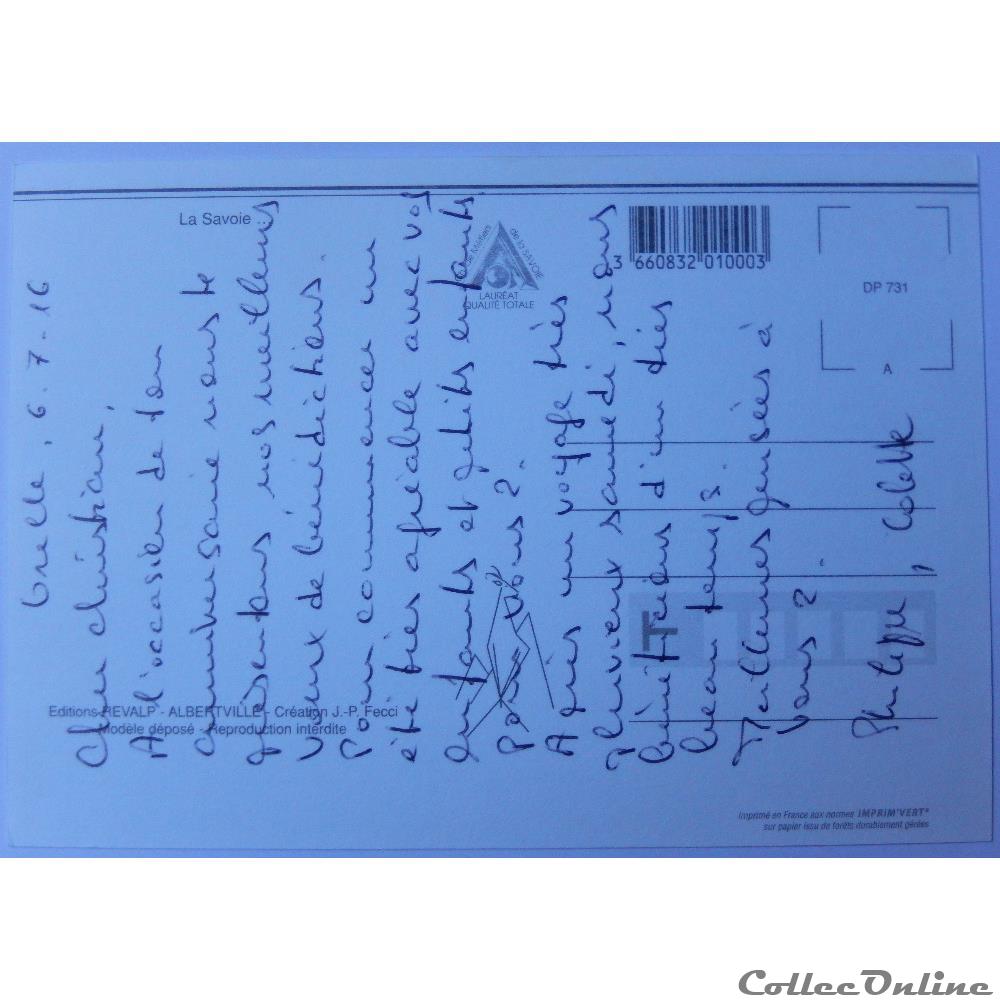 La Savoie ...
de la SAVOIE
LAURÉAT
QUALITÉ TOTALE
3 660832 010003
DP 731
A
Editions REVALP - ALBERTVILLE - Création J.-P. Fecci
Modèle déposé - Reproduction interdite
Imprimé en France aux normes IMPRIM'VERT®
sur papier issu de forêts durablement gérées
6.7.16
Cher Christian,
A l'occasion de ton
anniversaire nous te
présentons nos meilleurs
voeux de bénédictions.
Pour commencer un
été très agréable avec vos
enfants et petits enfants
Pour vous 2.
Après un voyage très
pluvieux samedi, nous
bénéficions d'un très
beau temps.
Meilleures pensées à
vous 2.
Philippe, Colette
T
CollecOnline